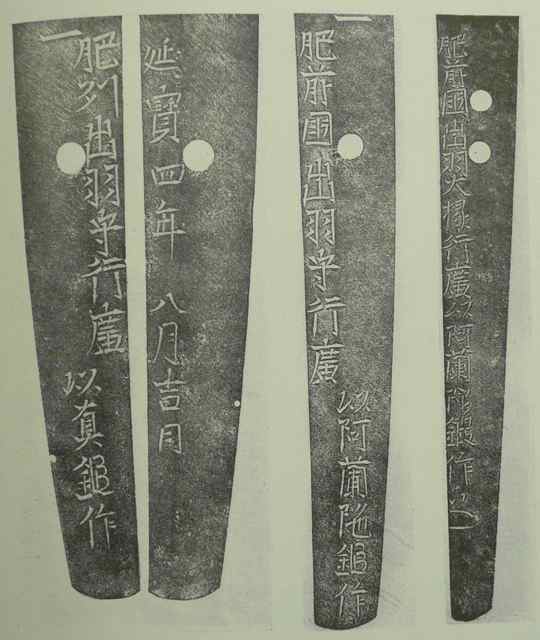 一肥州出羽守行廣
以真鍛作
延寶四年 八月吉日
一肥前國出羽守行廣
以阿蘭陀鍛作
肥前國出羽大掾行廣以阿蘭陀鍛作之